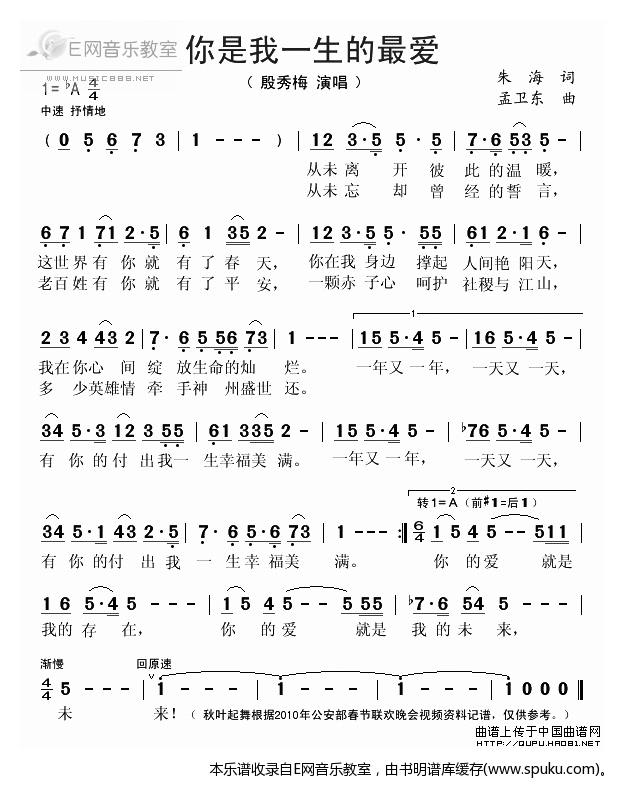 E网音乐教室
WWW.MUSIC888.NET
你是我一生的最爱
( 殷秀梅 演唱 )
朱 海 词
孟卫东 曲
1= ♭A 4/4
中速 抒情地
( 0 5 6 7 3 | 1 - - - ) | 12 3·5 5·5 | 7·6 53 5 - |
从未 离 开 彼 此 的 温 暖,
从未 忘 却 曾 经 的 誓 言,
6 7 1 71 2·5 | 6 1 35 2 - | 12 3·5 5·55 | 61 2·1 6 - |
这世 界 有 你 就 有 了 春 天, 你在我 身边 撑起 人间艳 阳天,
老百 姓 有 你 就 有 了 平 安, 一颗赤 子心 呵护 社稷与 江山,
2 3 4 43 2 | 7· 6 5 56 73 | 1 - - - | 15 5·4 5 - | 16 5·4 5 - |
1
我在你心 间 绽 放生命的灿 烂。 一年又 一 年, 一天又 一 天,
多 少英雄情 牵 手神 州盛世 还。
34 5·3 12 3 55 | 61 335 2 - | 1 - - - | 15 5·4 5 - | ♭76 5·4 5 - |
有 你 的 付 出 我一 生幸福美 满。 一年又 一 年, 一天又 一 天,
2
转1=A(前♯1=后1)
34 5·1 43 2·5 | 7· 6 5·6 73 | 1 - - - :‖ 6/4 1 5 4 5 - - 511 |
有 你 的付 出 我 一 生 幸 福美 满。 你 的 爱 就是
1 6 5·4 5 - - - | 15 4 5 - - 5 55 | ♭7·6 54 5 - - - |
我的 存 在, 你 的 爱 就是 我 的 未 来,
渐慢 回原速
4/4 5 - - - | 1 - - - | 1 - - - | 1 - - - | 1 0 0 0 ‖
未 来! ( 秋叶起舞根据2010年公安部春节联欢晚会视频资料记谱，仅供参考。)
曲谱上传于中国曲谱网
HTTP://QUPU.HAO81.NET
本乐谱收录自E网音乐教室，由书明谱库缓存(www.spuku.com)。